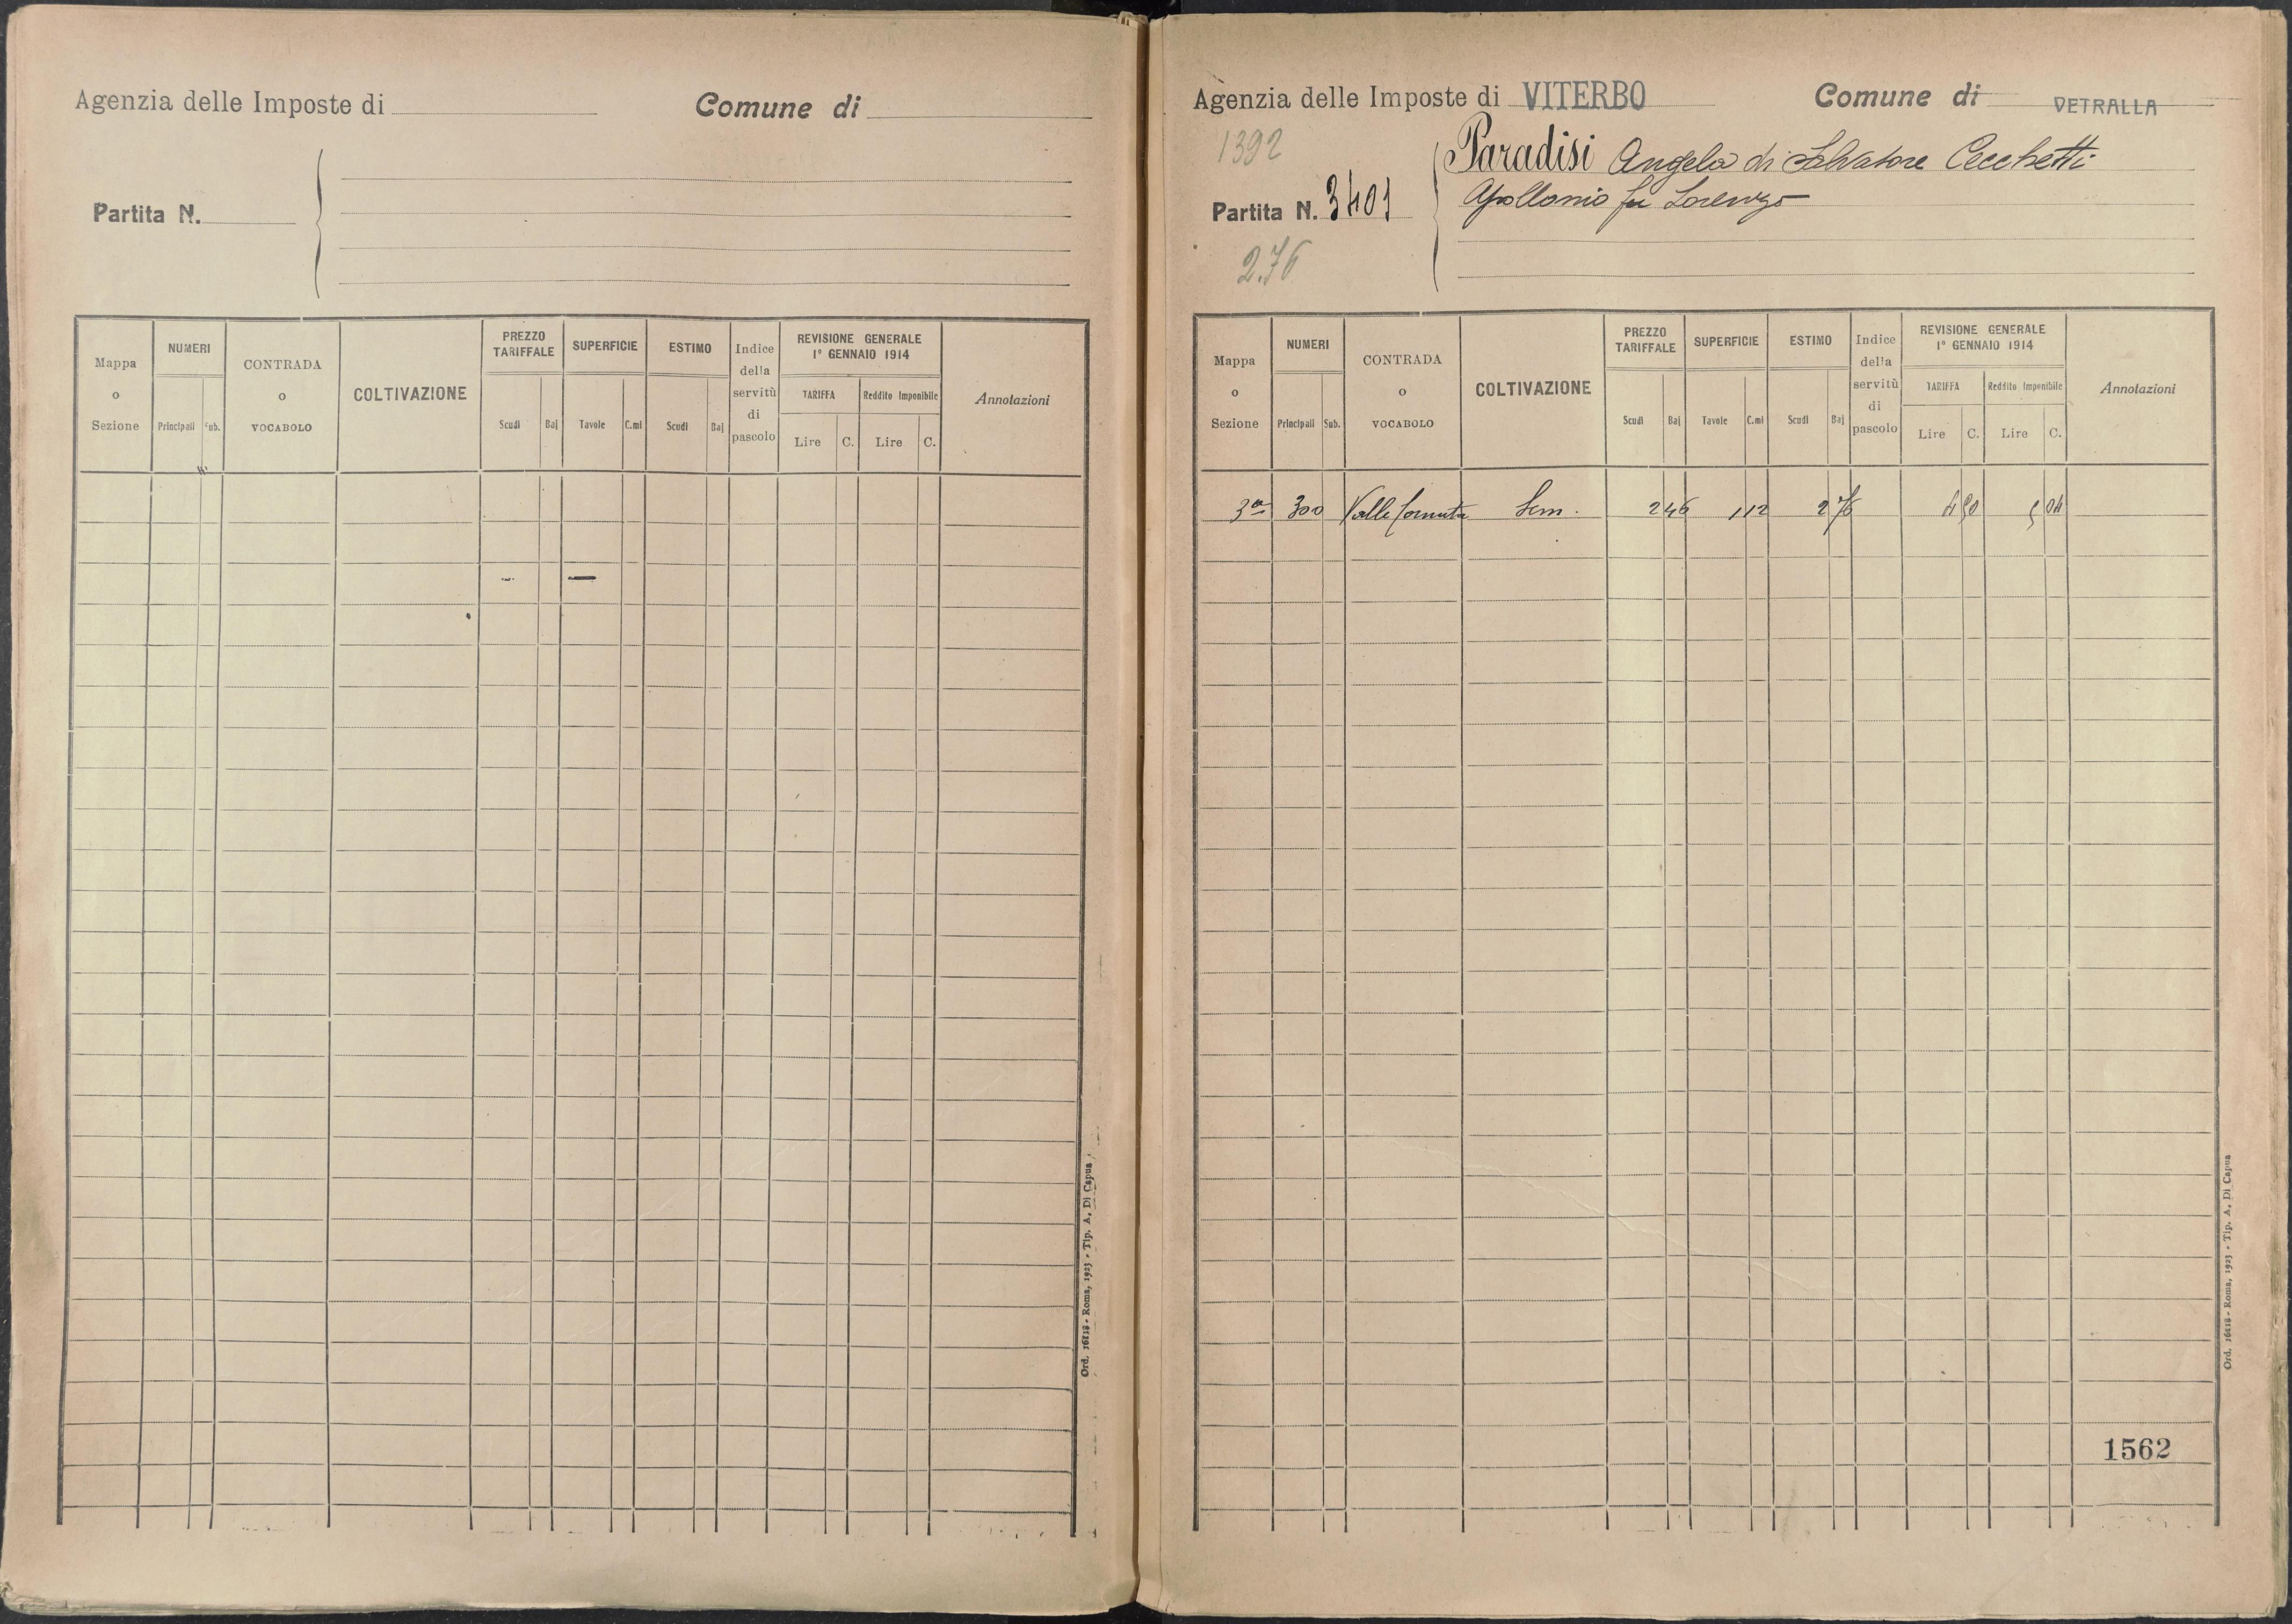 Agenzia delle Imposte di
Comune di
Partita N.
Mappa o Sezione
NUMERI
Principali
Sub.
CONTRADA o VOCABOLO
COLTIVAZIONE
PREZZO TARIFFALE
Scudi
Baj
SUPERFICIE
Tavole
C.mi
ESTIMO
Scudi
Baj
Indice della servitù di pascolo
REVISIONE GENERALE
1° GENNAIO 1914
TARIFFA
Lire
C.
Reddito Imponibile
Lire
C.
Annotazioni
Ord. 16818 - Roma, 1923 - Tip. A. Di Capua
Agenzia delle Imposte di VITERBO
Comune di VETRALLA
1392
Partita N. 3401
276
Paradisi Angela di Salvatore Cecchetti
Apollonio fu Lorenzo
Mappa o Sezione
NUMERI
Principali
Sub.
CONTRADA o VOCABOLO
COLTIVAZIONE
PREZZO TARIFFALE
Scudi
Baj
SUPERFICIE
Tavole
C.mi
ESTIMO
Scudi
Baj
Indice della servitù di pascolo
REVISIONE GENERALE
1° GENNAIO 1914
TARIFFA
Lire
C.
Reddito Imponibile
Lire
C.
Annotazioni
3a 300 Valle Cornuta Sem. 2 46 1 12 2 76 4 50 5 04
1562
Ord. 16818 - Roma, 1923 - Tip. A. Di Capua